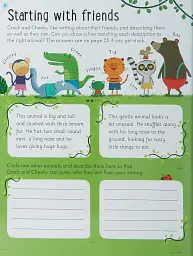 Starting with friends
Chick and Cheeky like writing about their friends, and describing them
as well as they can. Can you draw a line matching each description to
the right animal? The answers are on page 23 if you get stuck.
This animal is big and
tall and covered with thick brown
fur. He has two small round
ears, a long nose and he
loves giving huge hugs.
This gentle animal looks a
bit unusual. He snuffles along
with his long nose to the
ground, looking for tasty
little things to eat.
Circle two other animals, and describe them here so that
Chick and Cheeky can guess who they are from your writing.